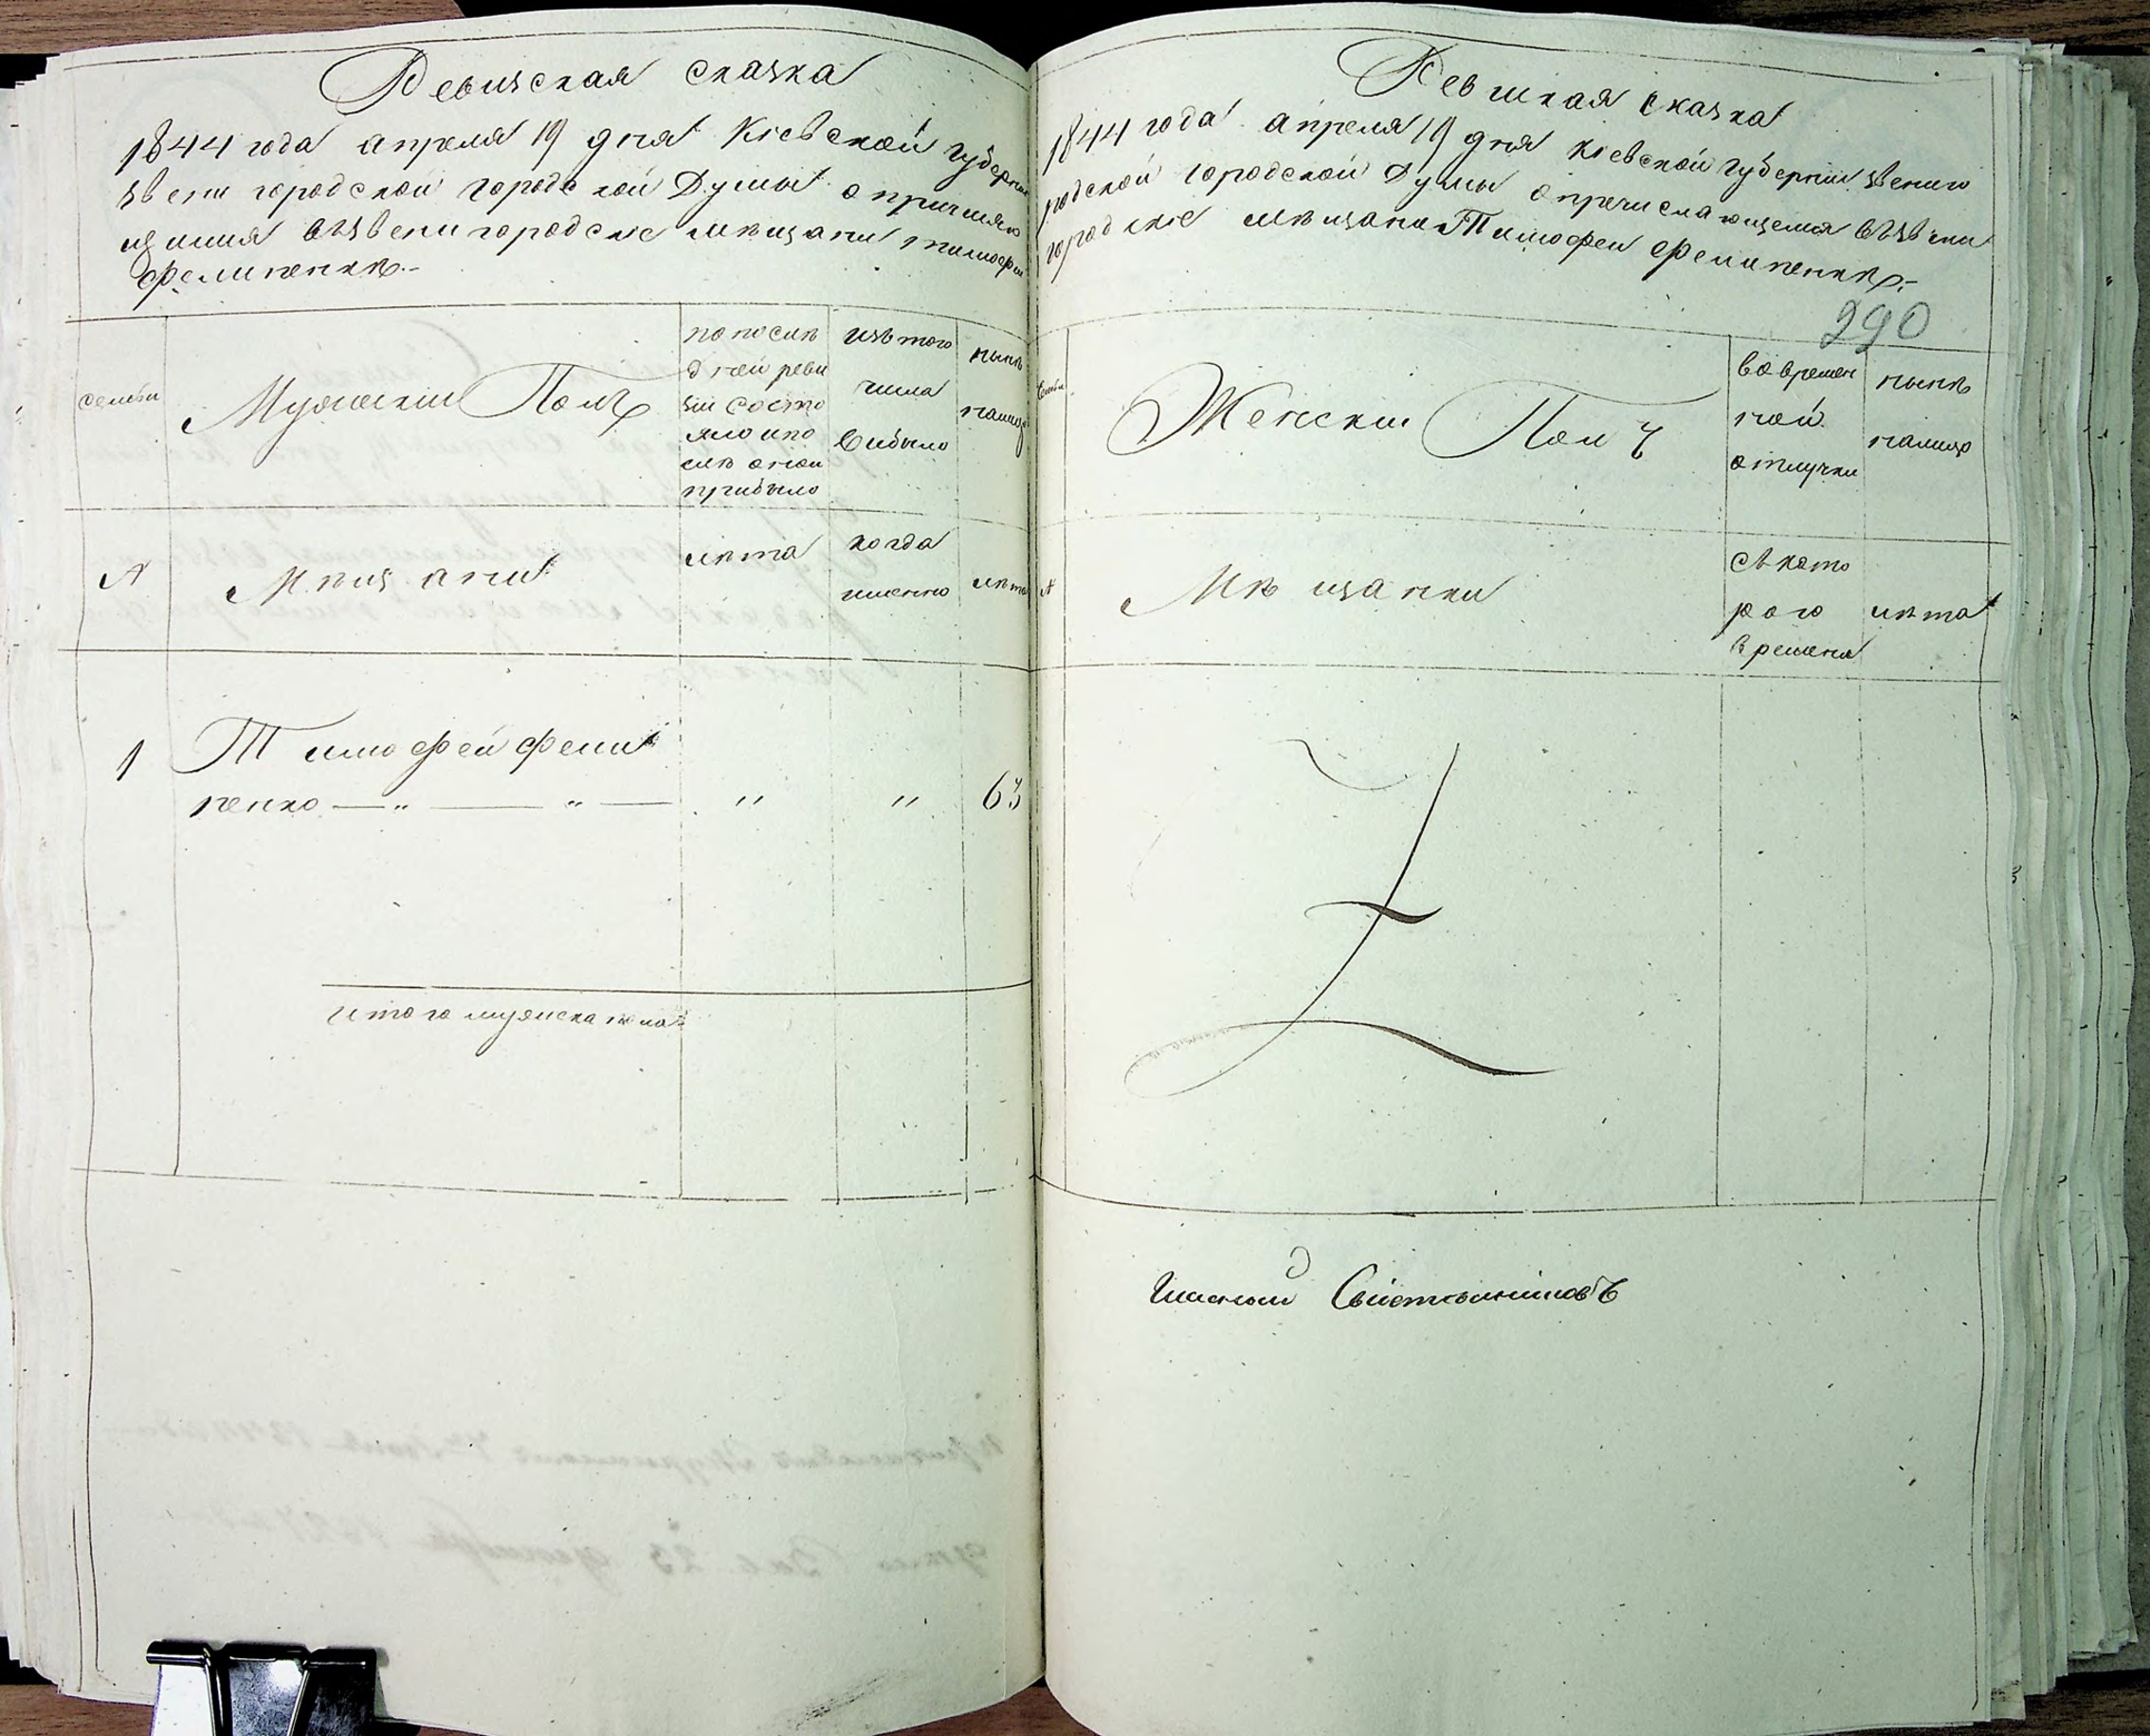 Ревизская сказка
1844 года апреля 19 дня Кіевской губерніи
звени городской городской Думы о причисляю
щимся въ звенигородскіе мѣщани тимофеи
фелипенкѣ.-
семьи
Мужескій Полъ
по послѣ
дней реви
зіи состо
яло и по
слѣ оной
прибыло
изъ того
числа
выбыло
нынѣ
налицо
№
Мѣщани
лѣта
когда
именно
лѣта
1
Тимофей фели
пенко — „ — „ —
„
„
63
итого мужеска пола
Ревизкая сказка
1844 года апреля 19 дня Кіевской губерніи звениго
родской городской Думы о причислающемся въ звени
городскіе мѣщани Тимофеи фелипенкѣ.-
290
семьи
Женскій Полъ
во времен
ной
отлучки
нынѣ
налицо
№
Мѣщанки
съ кото
рого
времени
лѣта
Гласный